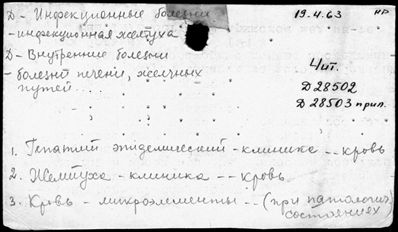 Д - Инфекционные болезни
- инфекционная желтуха
Д - Внутренние болезни
- болезни печени, желчных
путей...
19.4.63
НР
Чит.
Д 28502
Д 28503 прил.
1. Гепатит эпидемический - клинике -- кровь
2. Желтуха - клиника -- кровь
3. Кровь - микроэлементы -- (при патологич.
состояниях)